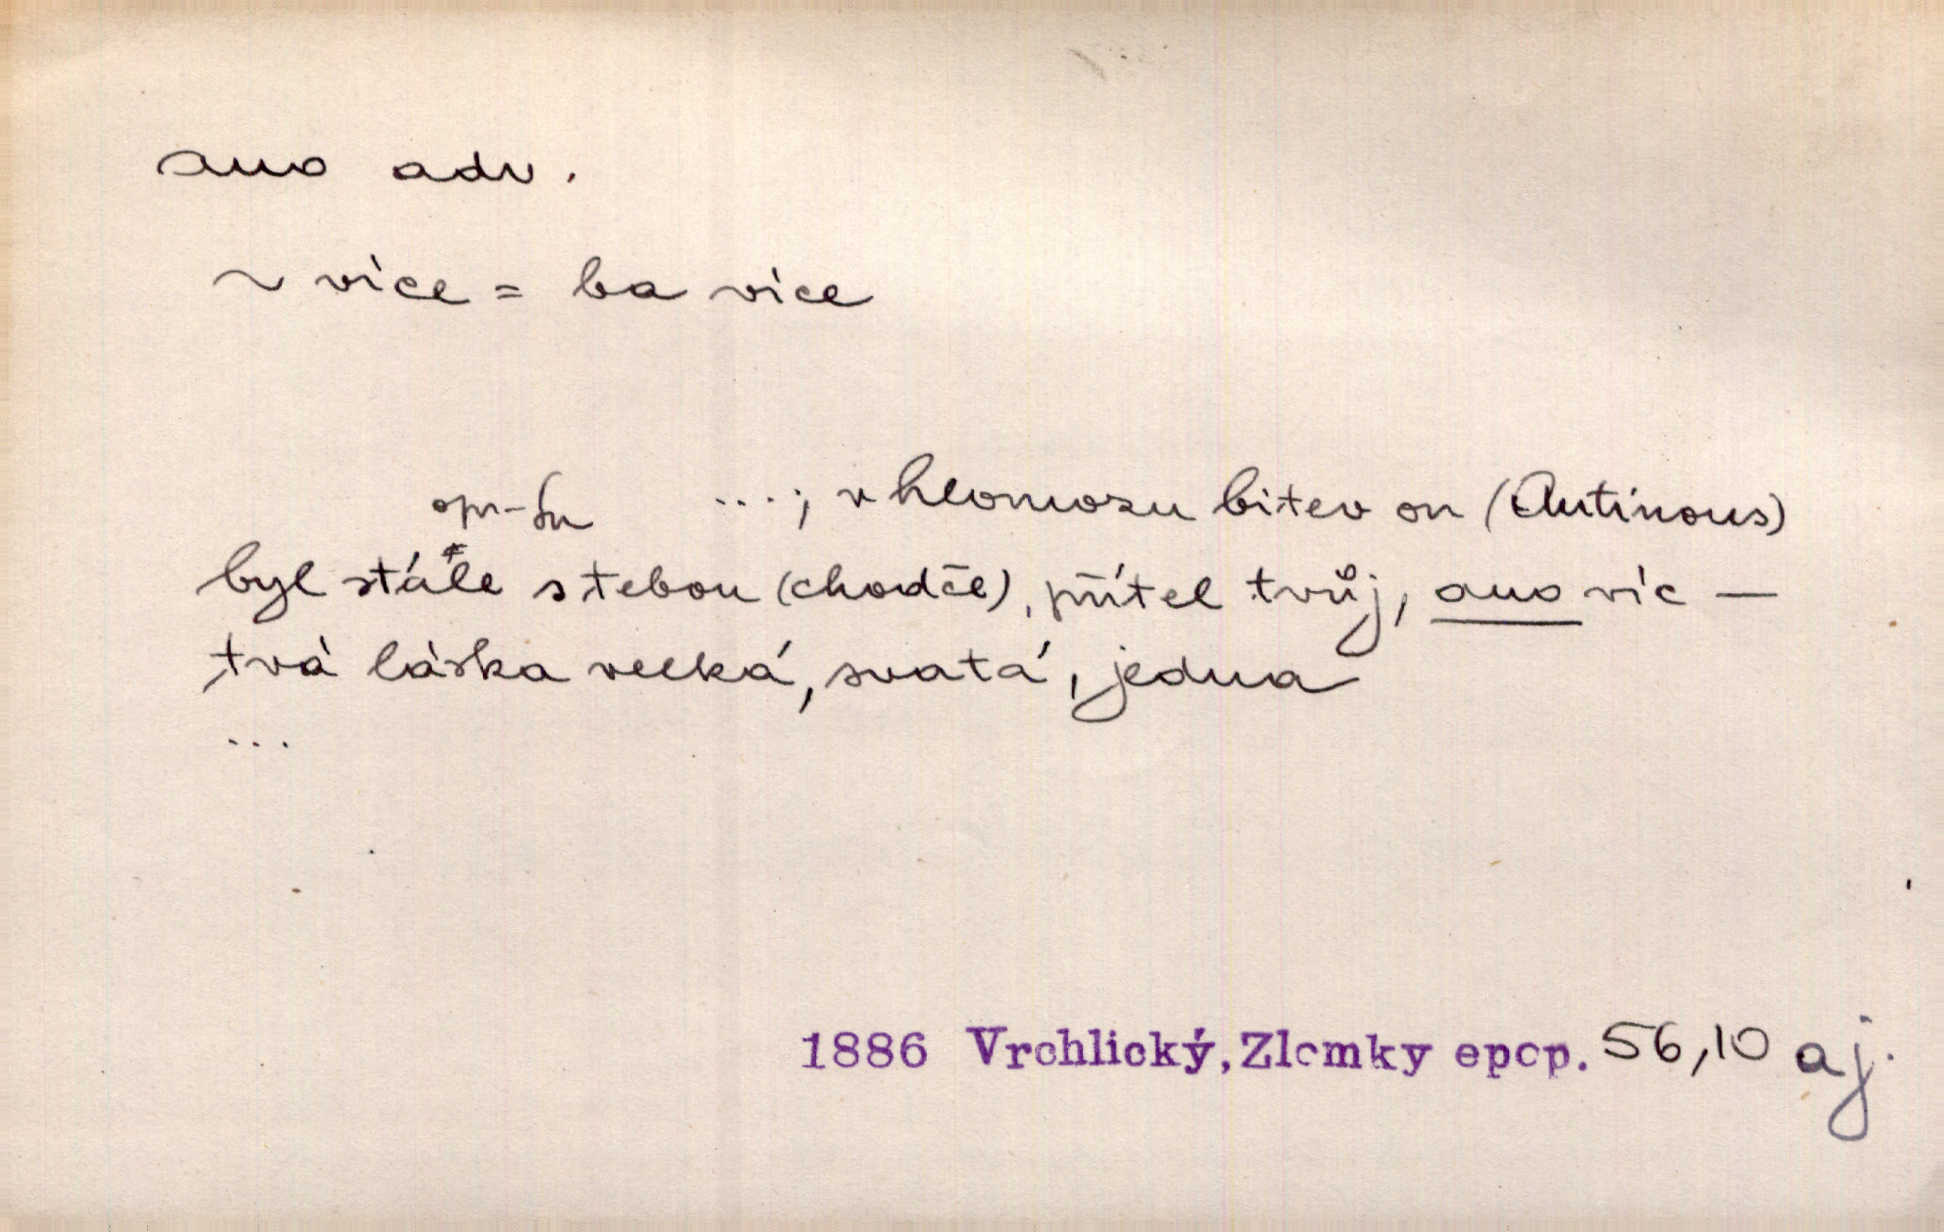 ano adv.
~ více = ba více
...; v hlomozu bitev on (Antinous)
byl stále s tebou (chodče), přítel tvůj, ano víc —
tvá láska velká, svatá, jedna
...
1886 Vrchlický, Zlomky epop. 56,10 aj.